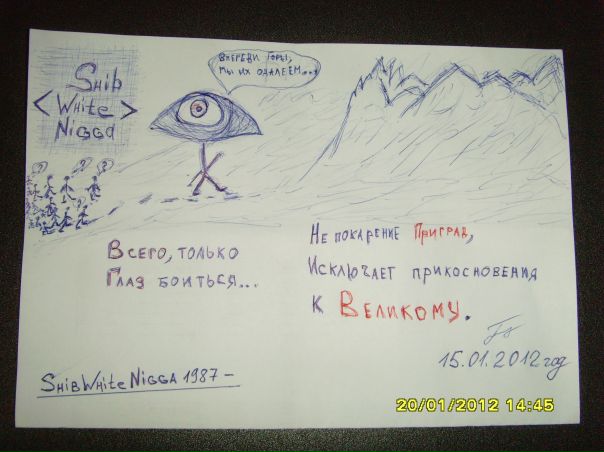 Shib
< White >
Nigga
Впереди Горы,
мы их одалеем...
?
?
?
Всего, только
Глаз боиться...
Не покарение Приград,
Исключает прикосновения
к Великому.
15.01.2012 год
ShibWhiteNigga 1987 –
20/01/2012 14:45